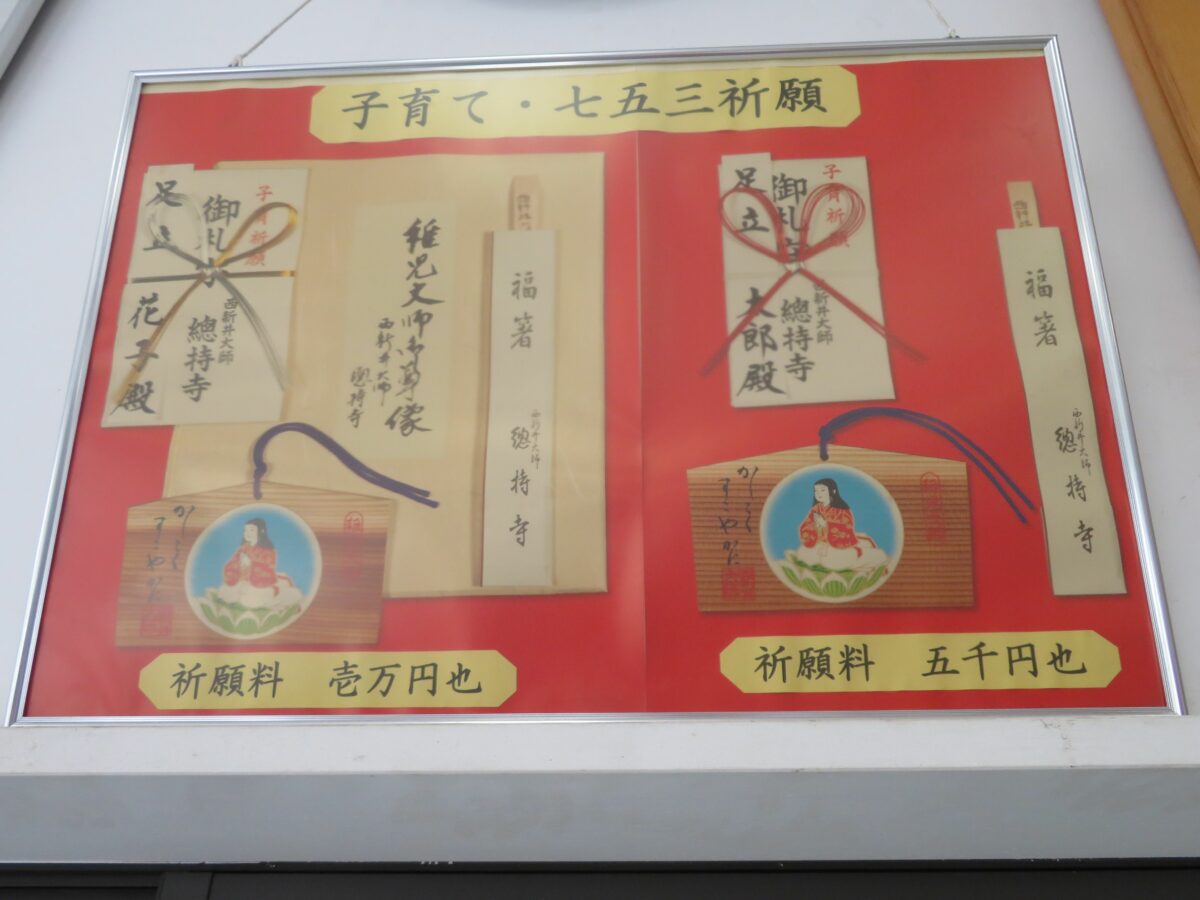 子育て・七五三祈願
子育祈願
御札
西新井大師
總持寺
足立 花子殿
稚児大師御尊像
西新井大師
總持寺
福箸
西新井大師
總持寺
かしこく
すこやかに
祈願料 壱万円也
子育祈願
御札
西新井大師
總持寺
足立 太郎殿
福箸
西新井大師
總持寺
かしこく
すこやかに
祈願料 五千円也